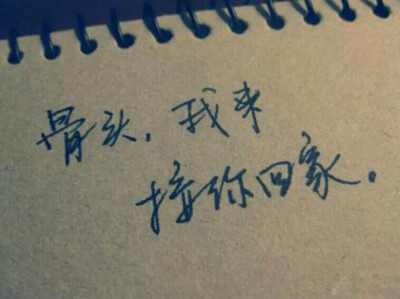 骨头，我来
接你回家。